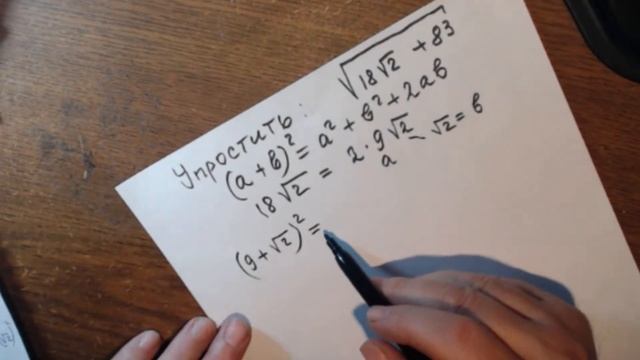 Упростить: √(18√2 + 83)
(a + b)² = a² + b² + 2ab
18√2 = 2 · 9√2 - √2 = b
a
(9 + √2)² =